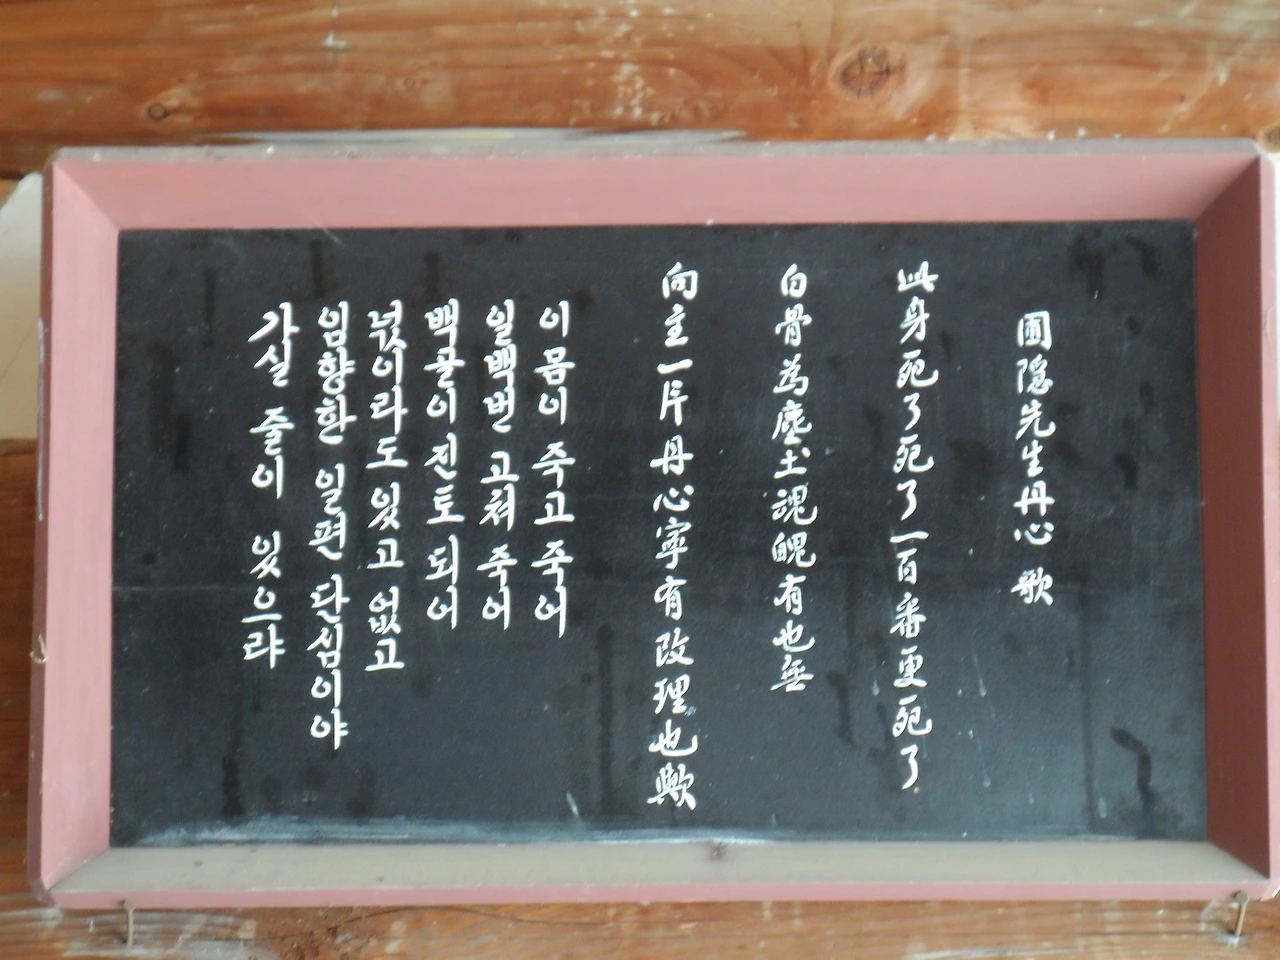 圃隠先生丹心歌
此身死了死了一百番更死了
白骨為塵土魂魄有也無
向主一片丹心寧有改理也歟
이몸이 죽고 죽어
일백번 고쳐 죽어
백골이 진토 되어
넋이라도 잇고 없고
임향한 일편 단심이야
가실 줄이 잇으랴